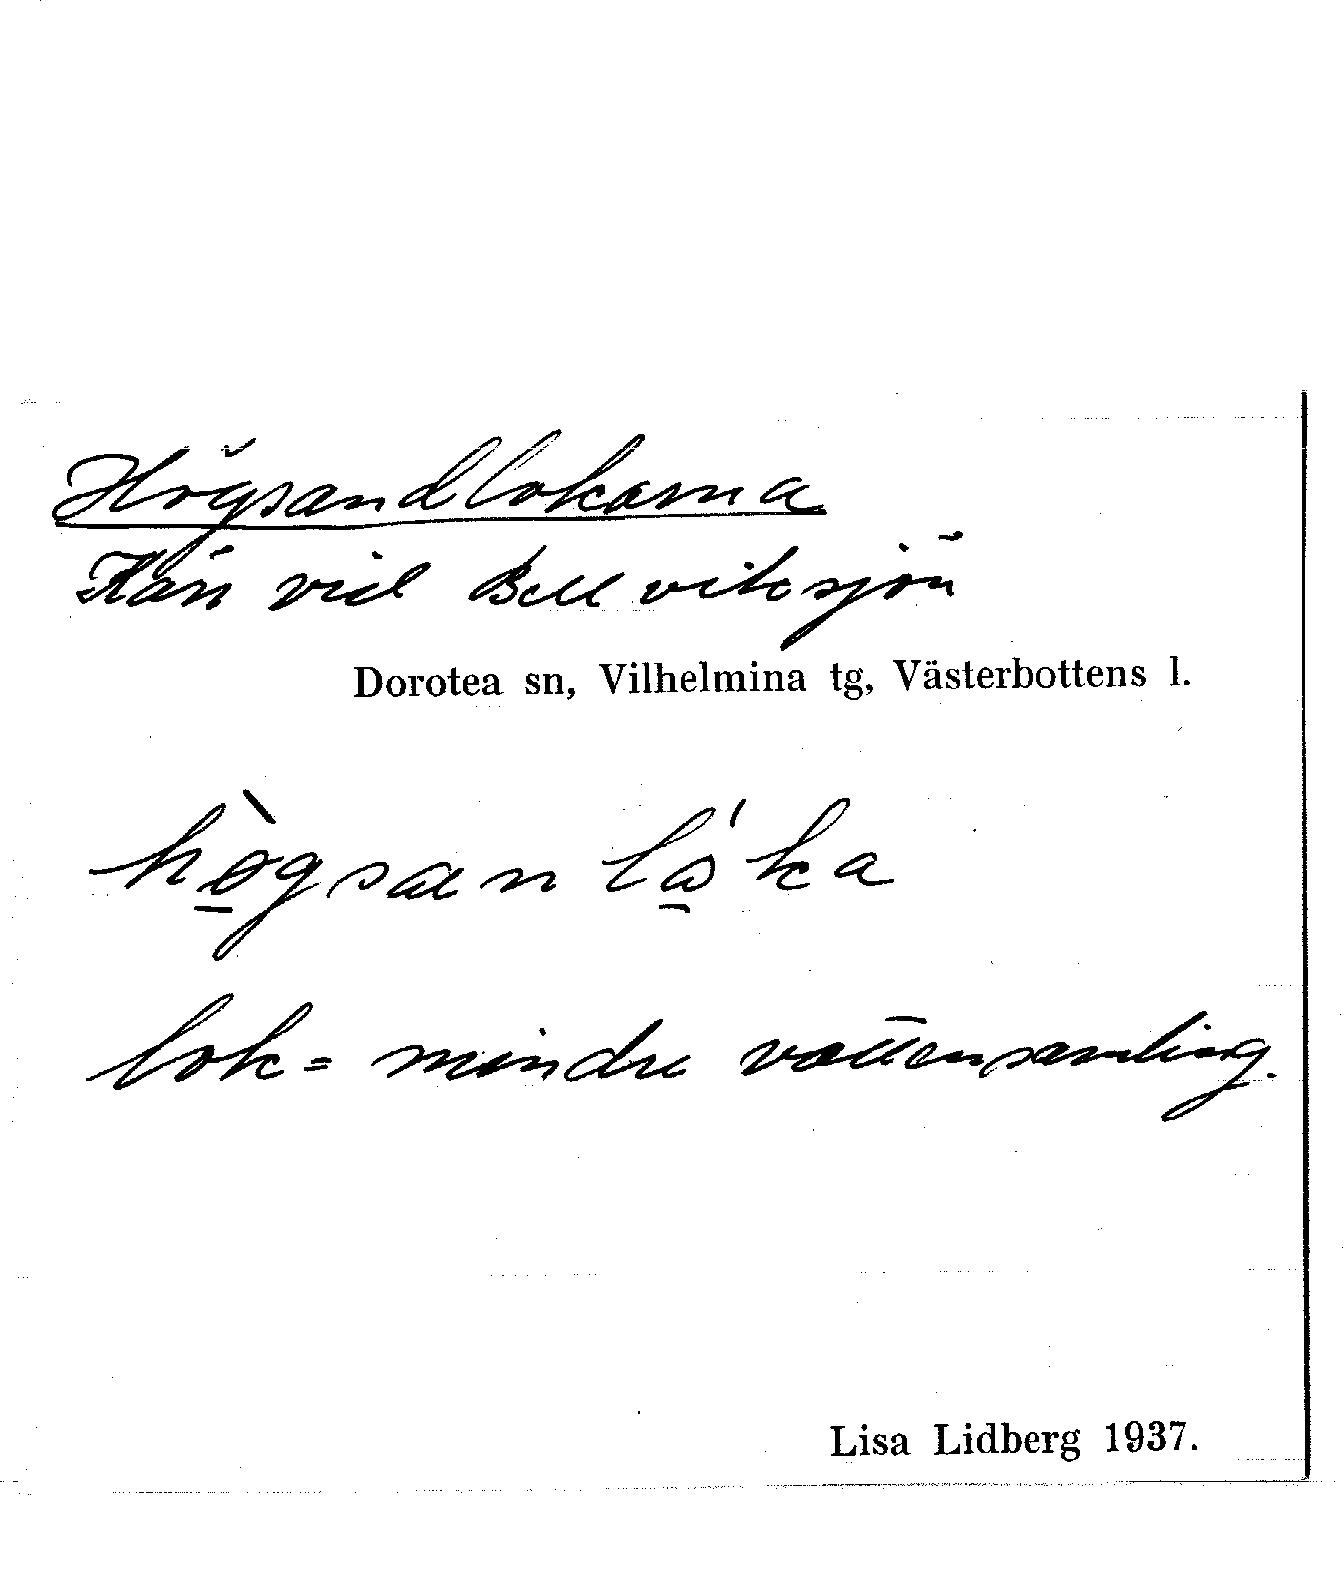 Högsandlokarna
Kärr vid Bellviksjön
Dorotea sn, Vilhelmina tg, Västerbottens l.
hö̀gsanlo̱'ka
lok = mindre vattensamling.
Lisa Lidberg 1937.